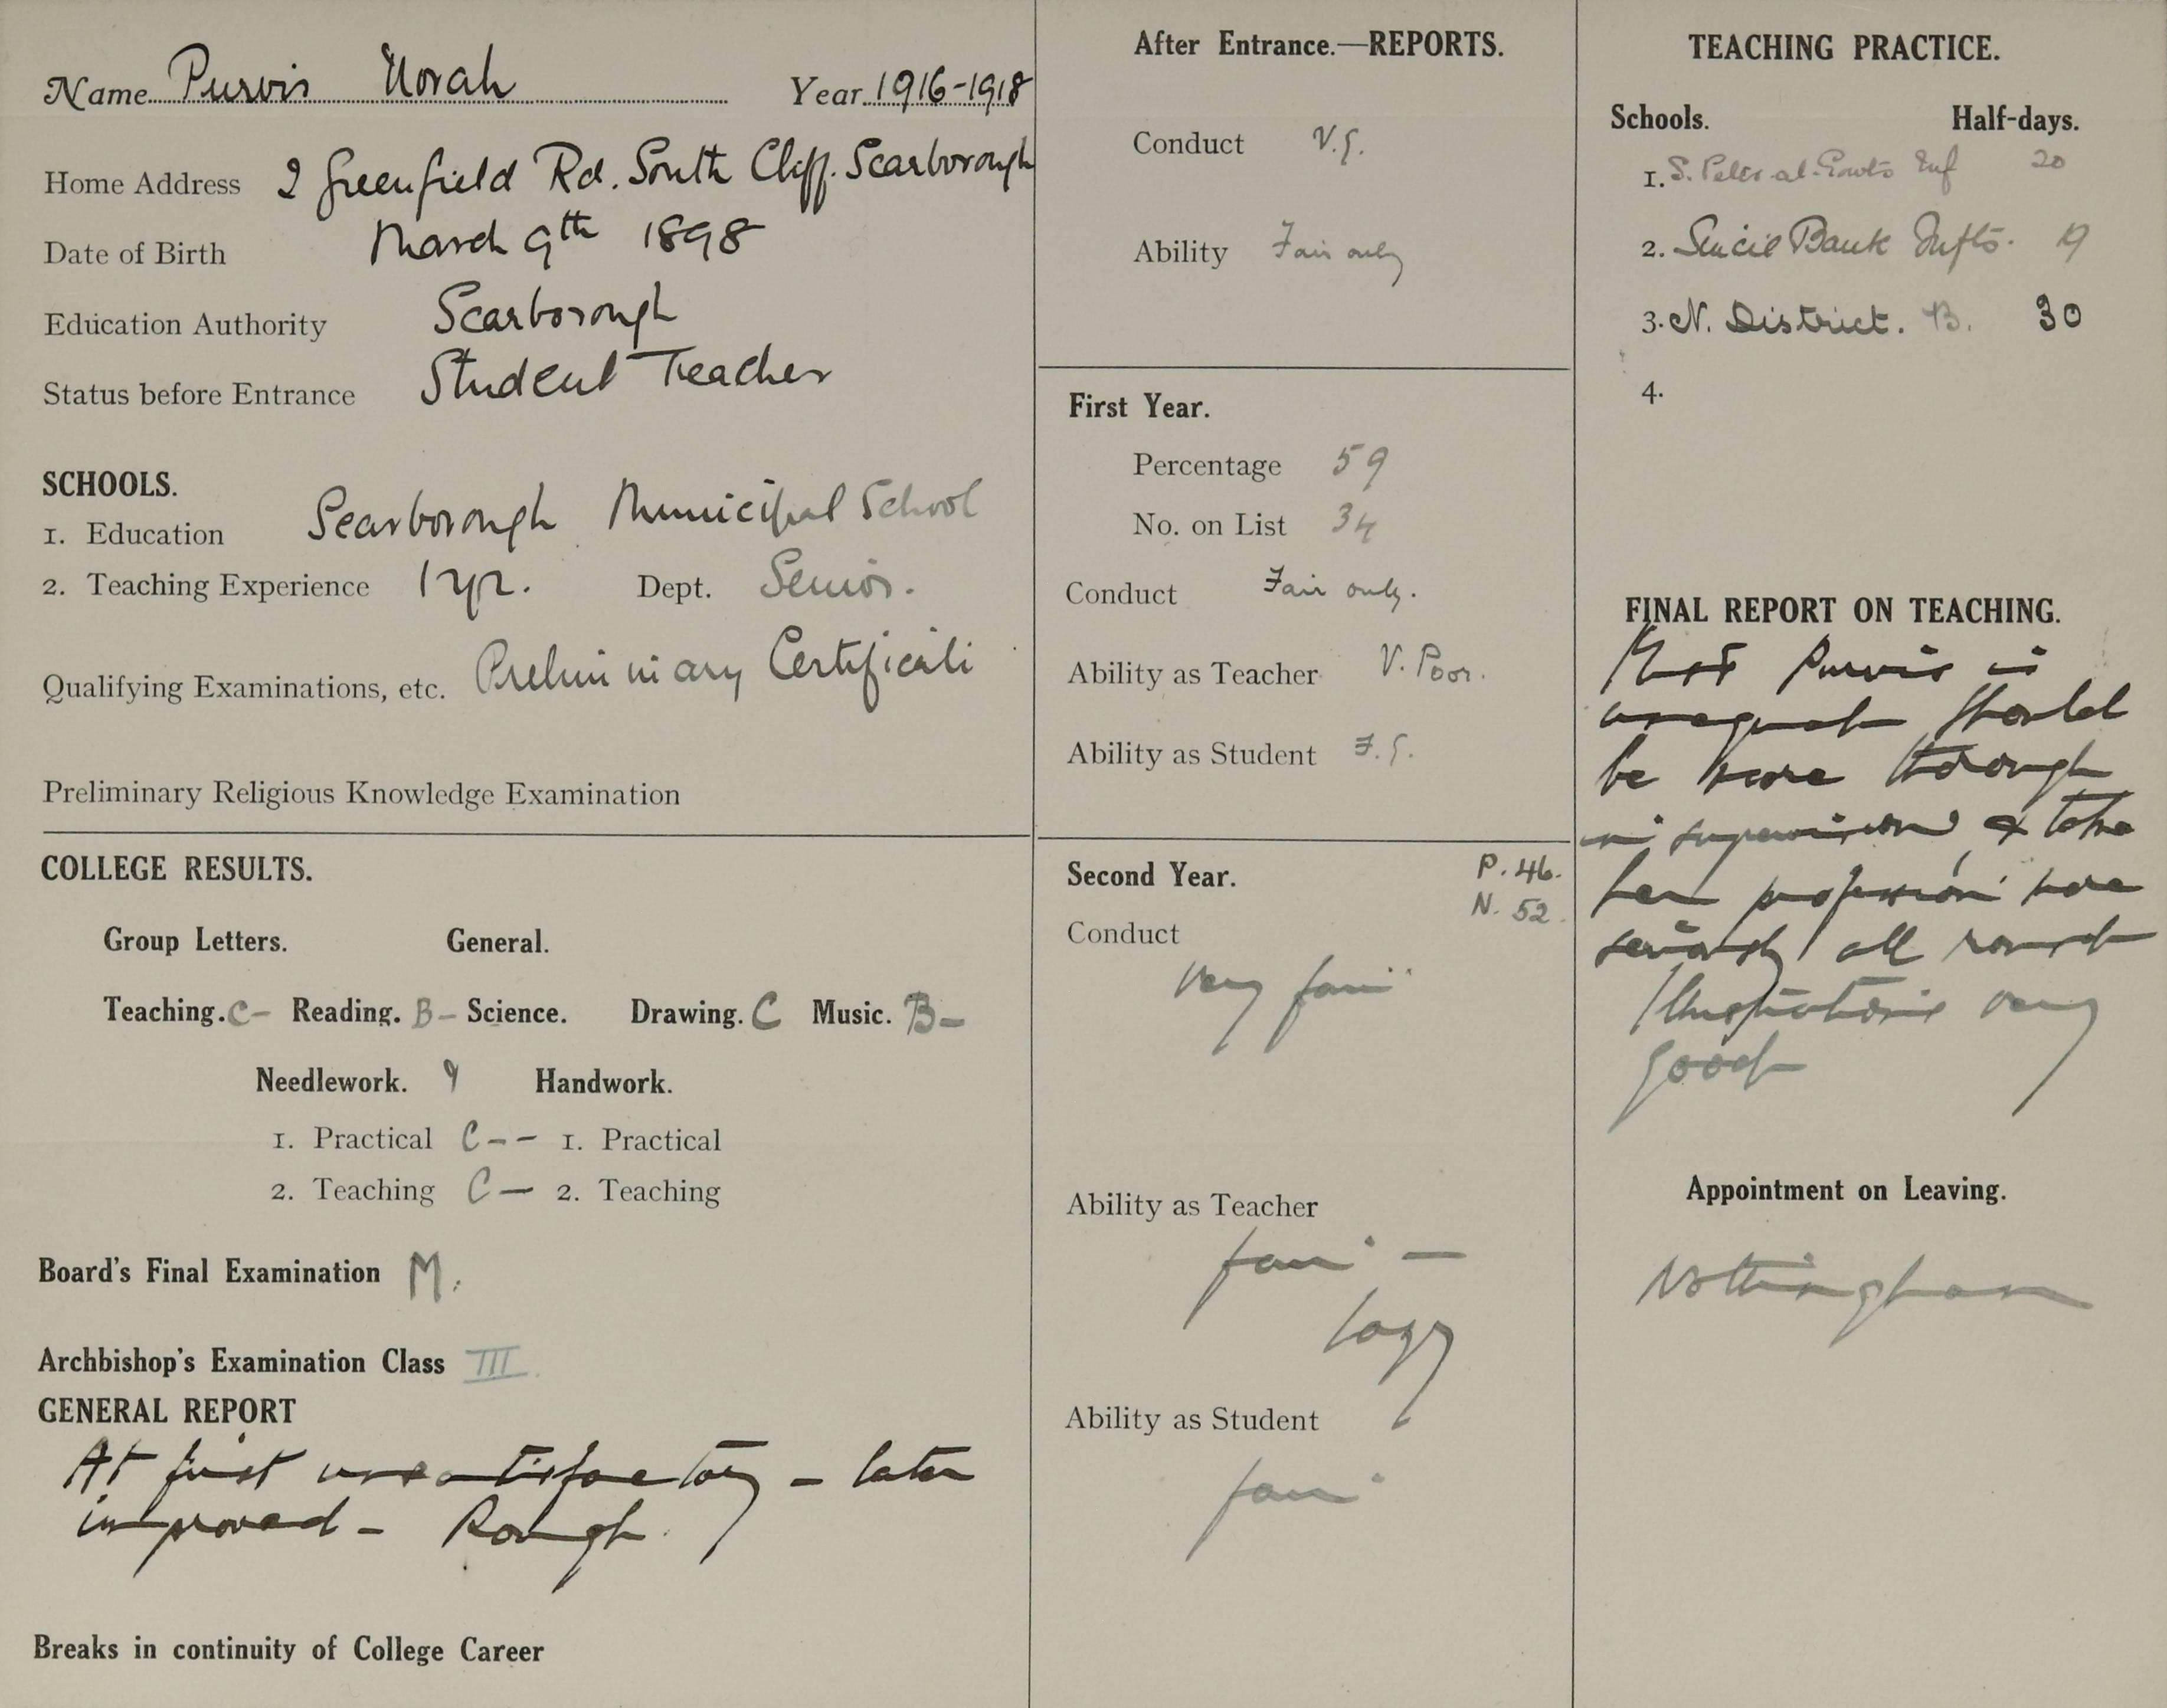 Name Purvis Norah Year 1916-1918
Home Address 2 Greenfield Rd. South Cliff. Scarborough
Date of Birth March 9th 1898
Education Authority Scarborough
Status before Entrance Student Teacher
SCHOOLS.
1. Education Scarborough Municipal School
2. Teaching Experience 1 yr. Dept. Senior.
Qualifying Examinations, etc. Preliminary Certificate
Preliminary Religious Knowledge Examination
COLLEGE RESULTS.
Group Letters. General.
Teaching. C- Reading. B- Science. Drawing. C Music. B-
Needlework. Handwork.
1. Practical C-- 1. Practical
2. Teaching C- 2. Teaching
Board's Final Examination M.
Archbishop's Examination Class III.
GENERAL REPORT
At first unsatisfactory - later
improved - Rough.
Breaks in continuity of College Career
After Entrance.—REPORTS.
Conduct V.G.
Ability Fair only
First Year.
Percentage 59
No. on List 34
Conduct Fair only.
Ability as Teacher V. Poor.
Ability as Student F.G.
Second Year. P. 46.
N. 52.
Conduct
Very fair
Ability as Teacher
fair -
lazy
Ability as Student
fair
TEACHING PRACTICE.
Schools. Half-days.
1. S. Peter-at-Gowts Inf 20
2. Sincil Bank Infts. 19
3. N. District. B. 30
4.
FINAL REPORT ON TEACHING.
Miss Purvis is
unequal should
be more thorough
in supervision & take
her profession more
seriously all round
Illustrations very
good
Appointment on Leaving.
Nottingham